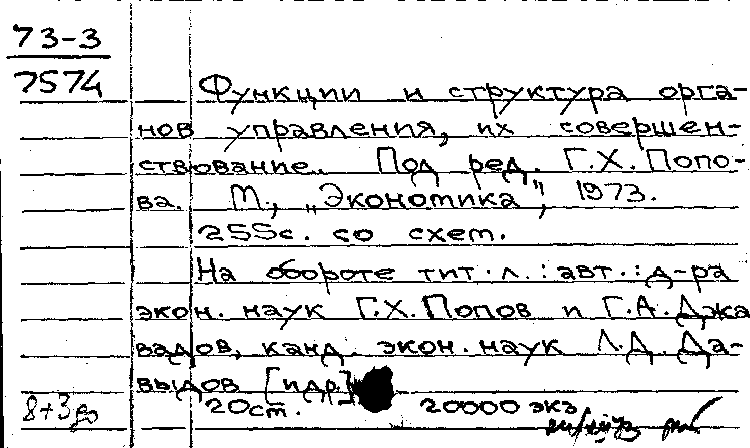 73-3
7574
Функции и структура орга-
нов управления, их совершен-
ствование. Под ред. Г.Х. Попо-
ва. М., „Экономика", 1973.
255с. со схем.
На обороте тит. л.: авт.: д-ра
экон. наук Г.Х. Попов и Г.А. Джа
вадов, канд. экон. наук Л.Д. Да-
выдов [и др]
8+3
20ст. 20000 экз